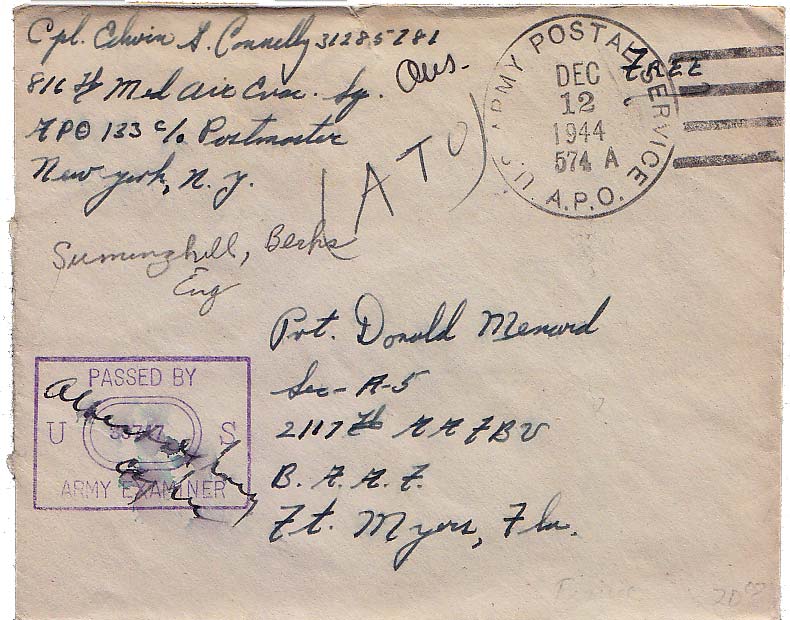 Cpl. Edwin G. Connelly 31285281
816th Med Air Evac. Sq. Ans.
APO 133 c/o Postmaster
New York, N.Y.
(ATC)
U.S. ARMY POSTAL SERVICE
A.P.O.
DEC
12
1944
574 A
FREE
Sunninghill, Berks
Eng
Pvt. Donald Menard
Sec-A-5
2117th AAFBU
B.A.A.F.
Ft. Myers, Fla.
PASSED BY
U S
ARMY EXAMINER
20